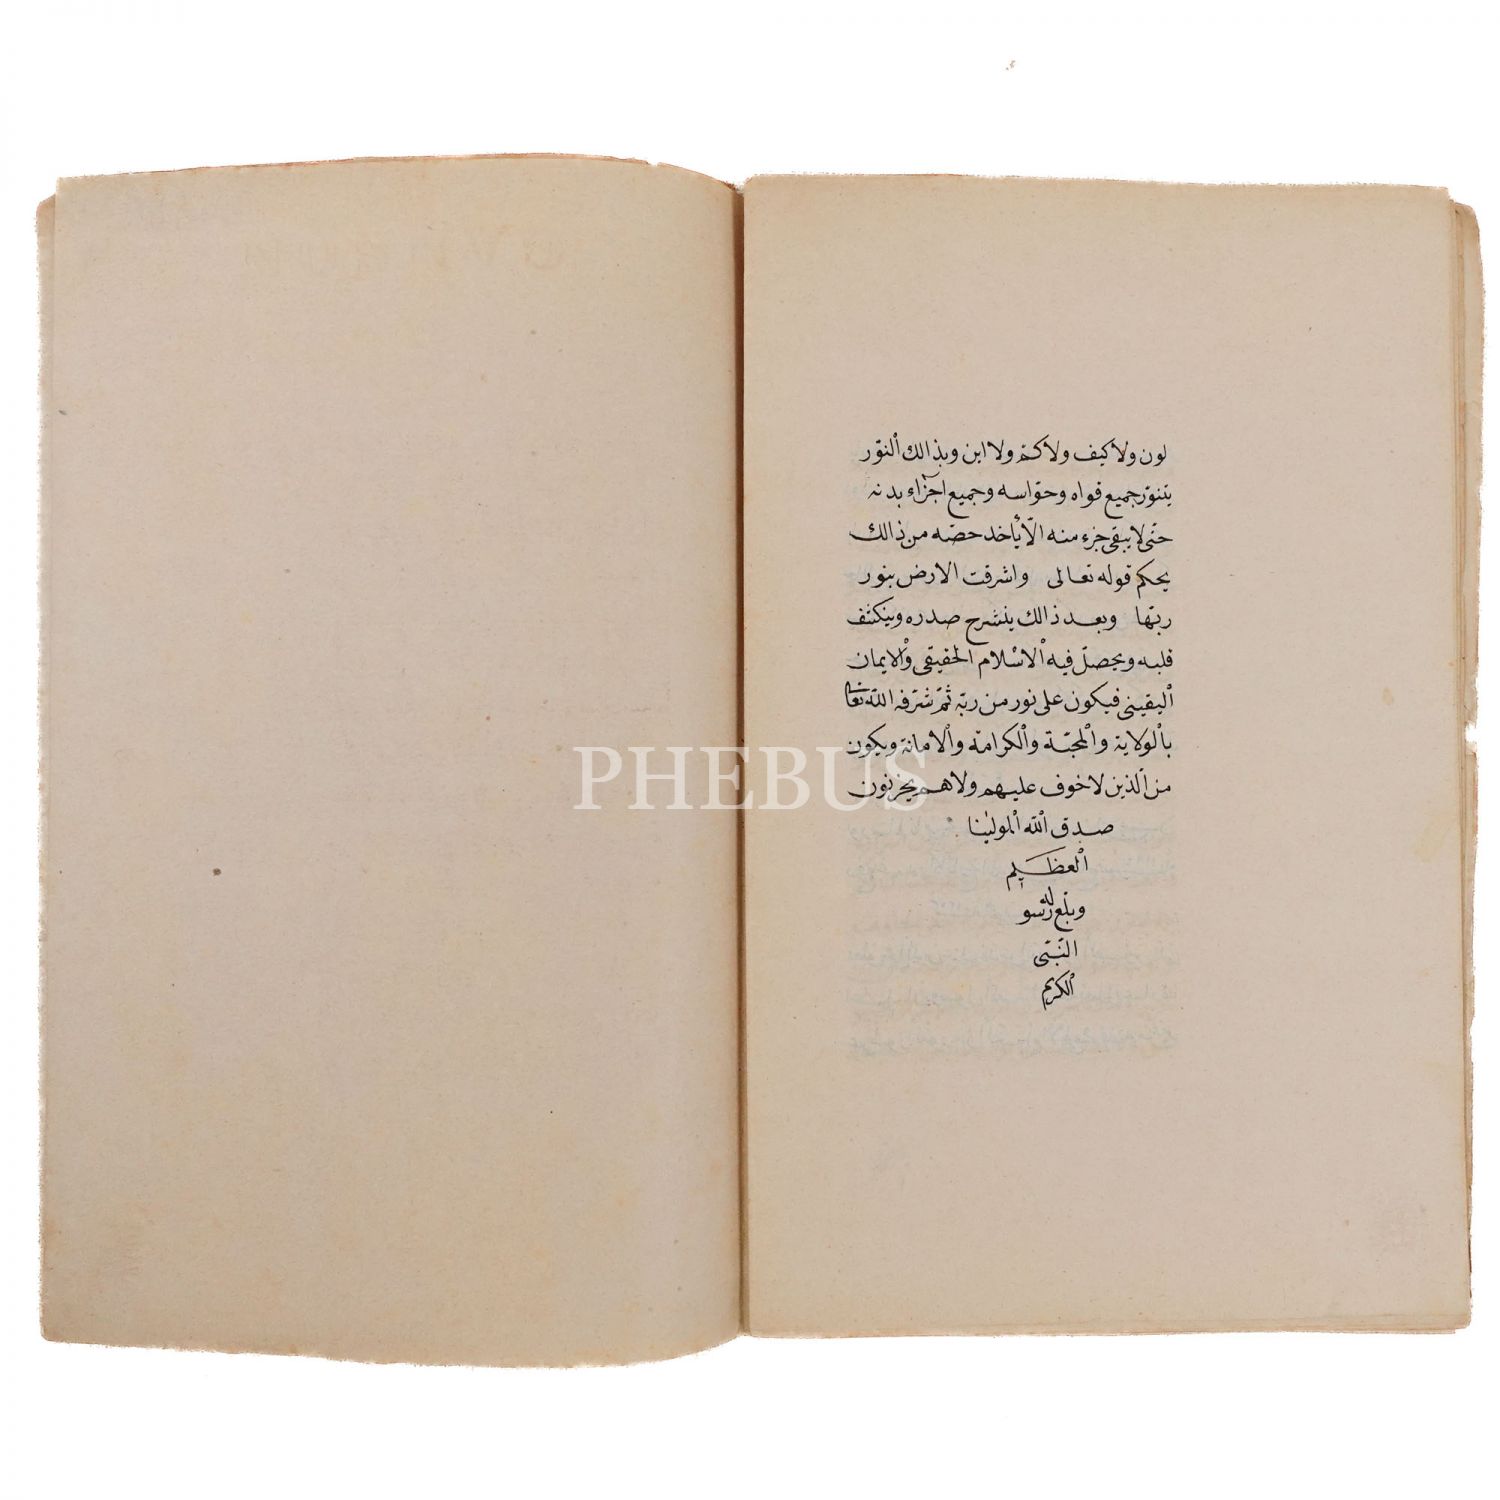 لون ولا كيف ولا كمّ ولا اين وبذالك ٱلنوّر
يتنوّر جميع قواه وحوّاسه وجميع اجزآء بدنه
حتّى لا يبقى جزء منه الّا يأخد حصّه من ذالك
يحكم قوله تعالى واشرقت الارض بنور
ربّها وبعد ذالك ينشرح صدره وينكشف
قلبه ويحصلّ فيه ٱلاسْلام الحقيقى وٱلايمان
ٱليقينى فيكون على نور من ربّه ثمّ شرّفه ٱللّه تعالى
بٱلولاية وٱلمحبّة وٱلكرامة وٱلامانة ويكون
من ٱلّذين لا خوف عليهم ولا هم يحزنون
صدق ٱللّه ٱلمولينا
ٱلعظيم
وبلّغ رسوله
النّبّى
ٱلكريم
PHEBUS